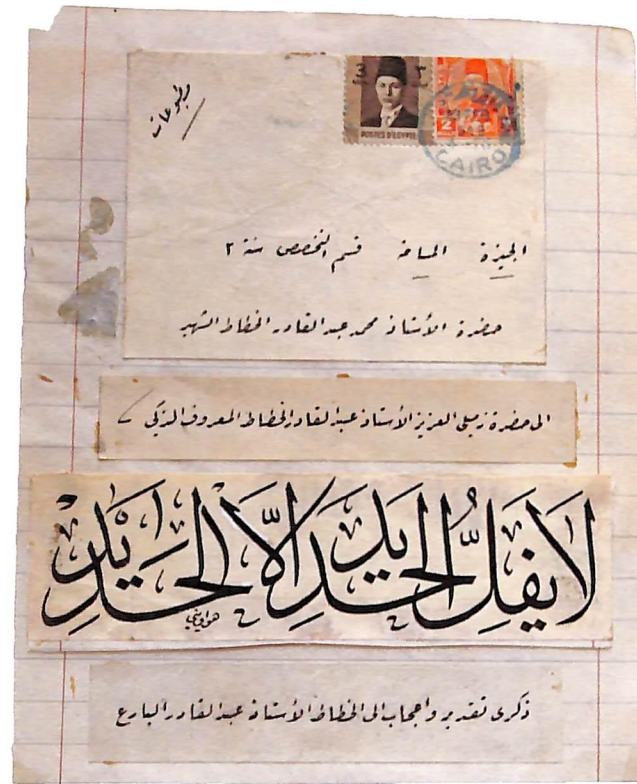 مطبوعات
POSTES D'EGYPTE
2
CAIRO
الجيزة المساحة قسم التخصص سنة ٢
حضرة الأستاذ محمد عبد القادر الخطاط الشهير
الى حضرة زميلي العزيز الأستاذ عبد القادر الخطاط المعروف الذكي
لَا يَفُلُّ الحَدِيدَ إلَّا الحَدِيد
هواويني
ذكرى تقدير واعجاب الى الخطاط الأستاذ عبد القادر البارع